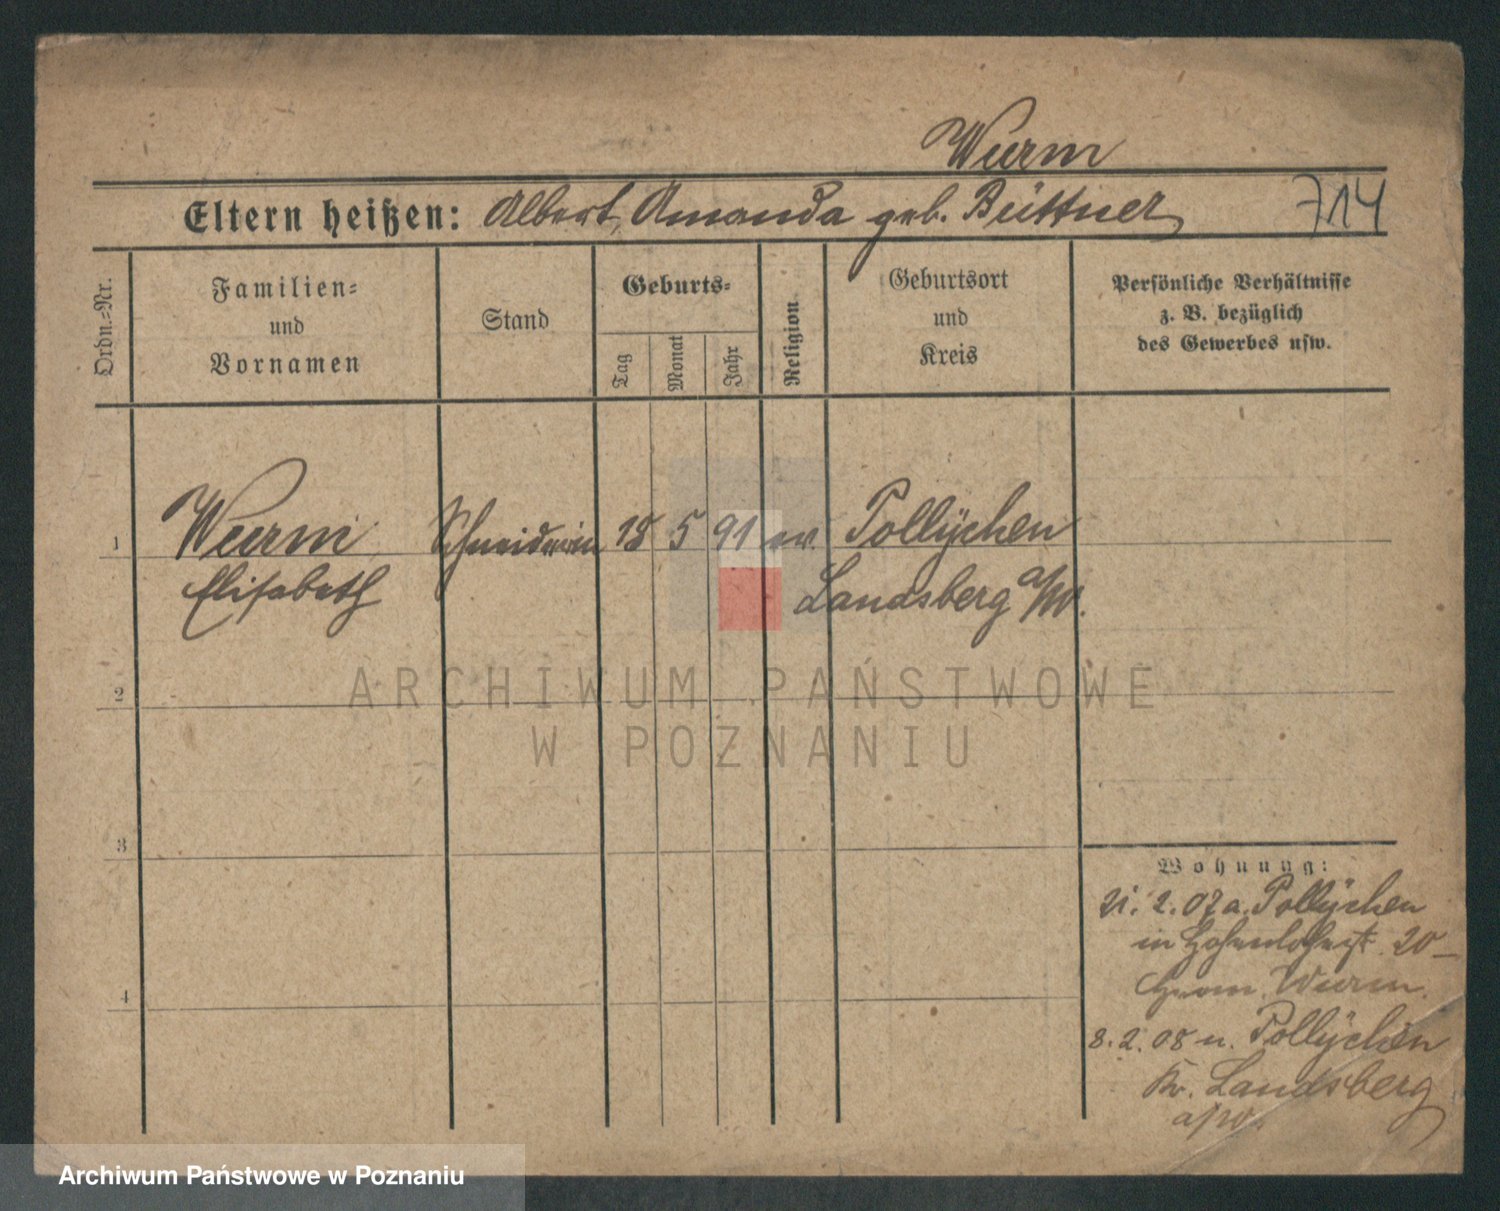 Wurm
Eltern heißen: Albert, Amanda geb. Büttner 714
Ordn.=Nr.
Familien=
und
Vornamen
Stand
Geburts=
Tag
Monat
Jahr
Religion
Geburtsort
und
Kreis
Persönliche Verhältnisse
z. B. bezüglich
des Gewerbes usw.
1 Wurm Schneiderin 18 5 91 ev. Pollychen
Elisabeth Landsberg a/W.
ARCHIWUM PAŃSTWOWE
W POZNANIU
2
3
4
Wohnung:
21. 2. 07 a. Pollychen
in 20
Wurm.
8. 2. 08 n. Pollychen
Kr. Landsberg
a/W.
Archiwum Państwowe w Poznaniu